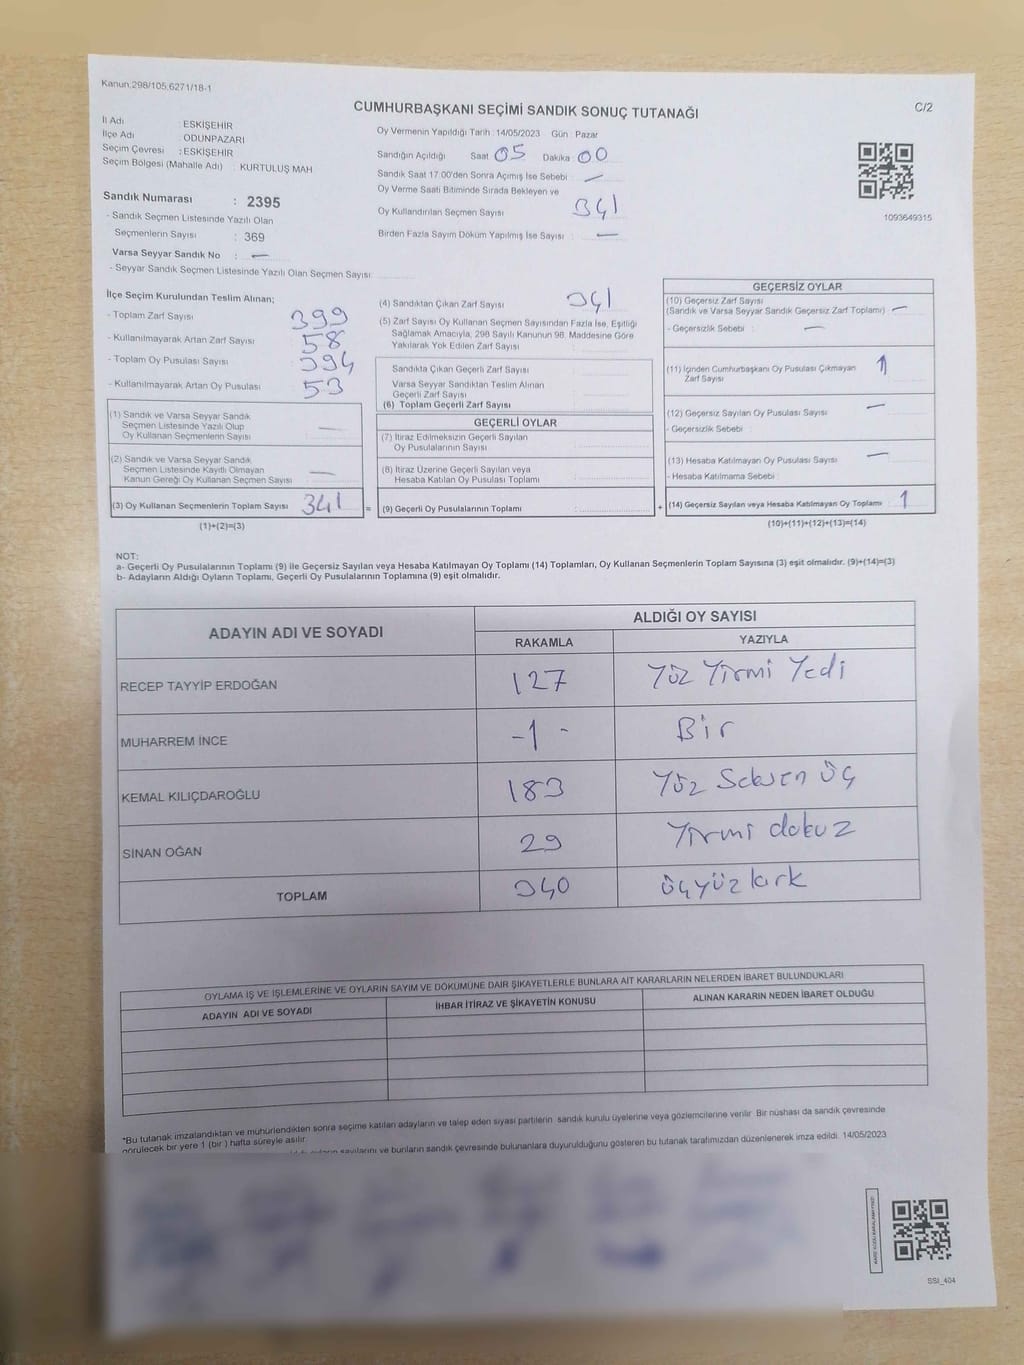 Kanun.298/105,6271/18-1
CUMHURBAŞKANI SEÇİMİ SANDIK SONUÇ TUTANAĞI
C/2
İl Adı : ESKİŞEHİR
İlçe Adı : ODUNPAZARI
Seçim Çevresi : ESKİŞEHİR
Seçim Bölgesi (Mahalle Adı) : KURTULUŞ MAH
Oy Vermenin Yapıldığı Tarih : 14/05/2023 Gün : Pazar
Sandığın Açıldığı Saat 05 Dakika 00
Sandık Saat 17.00'den Sonra Açımış İse Sebebi : —
Oy Verme Saati Bitiminde Sırada Bekleyen ve
Oy Kullandırılan Seçmen Sayısı 341
Birden Fazla Sayım Döküm Yapılmış İse Sayısı : —
1093649315
Sandık Numarası : 2395
- Sandık Seçmen Listesinde Yazılı Olan
Seçmenlerin Sayısı : 369
Varsa Seyyar Sandık No : —
- Seyyar Sandık Seçmen Listesinde Yazılı Olan Seçmen Sayısı:
İlçe Seçim Kurulundan Teslim Alınan;
- Toplam Zarf Sayısı 399
- Kullanılmayarak Artan Zarf Sayısı 58
- Toplam Oy Pusulası Sayısı 394
- Kullanılmayarak Artan Oy Pusulası 53
(1) Sandık ve Varsa Seyyar Sandık
Seçmen Listesinde Yazılı Olup
Oy Kullanan Seçmenlerin Sayısı : —
(2) Sandık ve Varsa Seyyar Sandık
Seçmen Listesinde Kayıtlı Olmayan
Kanun Gereği Oy Kullanan Seçmen Sayısı : —
(3) Oy Kullanan Seçmenlerin Toplam Sayısı 341 =
(1)+(2)=(3)
(4) Sandıktan Çıkan Zarf Sayısı 341
(5) Zarf Sayısı Oy Kullanan Seçmen Sayısından Fazla İse, Eşitliği
Sağlamak Amacıyla, 298 Sayılı Kanunun 98. Maddesine Göre
Yakılarak Yok Edilen Zarf Sayısı :
Sandıkta Çıkan Geçerli Zarf Sayısı
Varsa Seyyar Sandıktan Teslim Alınan
Geçerli Zarf Sayısı
(6) Toplam Geçerli Zarf Sayısı
GEÇERLİ OYLAR
(7) İtiraz Edilmeksizin Geçerli Sayılan
Oy Pusulalarının Sayısı
(8) İtiraz Üzerine Geçerli Sayılan veya
Hesaba Katılan Oy Pusulası Toplamı
(9) Geçerli Oy Pusulalarının Toplamı : +
GEÇERSİZ OYLAR
(10) Geçersiz Zarf Sayısı
(Sandık ve Varsa Seyyar Sandık Geçersiz Zarf Toplamı) —
- Geçersizlik Sebebi : —
(11) İçinden Cumhurbaşkanı Oy Pusulası Çıkmayan
Zarf Sayısı 1
(12) Geçersiz Sayılan Oy Pusulası Sayısı —
- Geçersizlik Sebebi :
(13) Hesaba Katılmayan Oy Pusulası Sayısı —
- Hesaba Katılmama Sebebi :
(14) Geçersiz Sayılan veya Hesaba Katılmayan Oy Toplamı 1
(10)+(11)+(12)+(13)=(14)
NOT:
a- Geçerli Oy Pusulalarının Toplamı (9) ile Geçersiz Sayılan veya Hesaba Katılmayan Oy Toplamı (14) Toplamları, Oy Kullanan Seçmenlerin Toplam Sayısına (3) eşit olmalıdır. (9)+(14)=(3)
b- Adayların Aldığı Oyların Toplamı, Geçerli Oy Pusulalarının Toplamına (9) eşit olmalıdır.
ADAYIN ADI VE SOYADI ALDIĞI OY SAYISI
RAKAMLA YAZIYLA
RECEP TAYYİP ERDOĞAN 127 Yüz Yirmi Yedi
MUHARREM İNCE -1- Bir
KEMAL KILIÇDAROĞLU 183 Yüz Seksen üç
SİNAN OĞAN 29 Yirmi dokuz
TOPLAM 340 üçyüzkırk
OYLAMA İŞ VE İŞLEMLERİNE VE OYLARIN SAYIM VE DÖKÜMÜNE DAİR ŞİKAYETLERLE BUNLARA AİT KARARLARIN NELERDEN İBARET BULUNDUKLARI
ADAYIN ADI VE SOYADI İHBAR İTİRAZ VE ŞİKAYETİN KONUSU ALINAN KARARIN NEDEN İBARET OLDUĞU
*Bu tutanak imzalandıktan ve mühürlendikten sonra seçime katılan adayların ve talep eden siyasi partilerin sandık kurulu üyelerine veya gözlemcilerine verilir. Bir nüshası da sandık çevresinde
görülecek bir yere 1 (bir) hafta süreyle asılır.
sayılarını ve bunların sandık çevresinde bulunanlara duyurulduğunu gösteren bu tutanak tarafımızdan düzenlenerek imza edildi. 14/05/2023
SSI_404